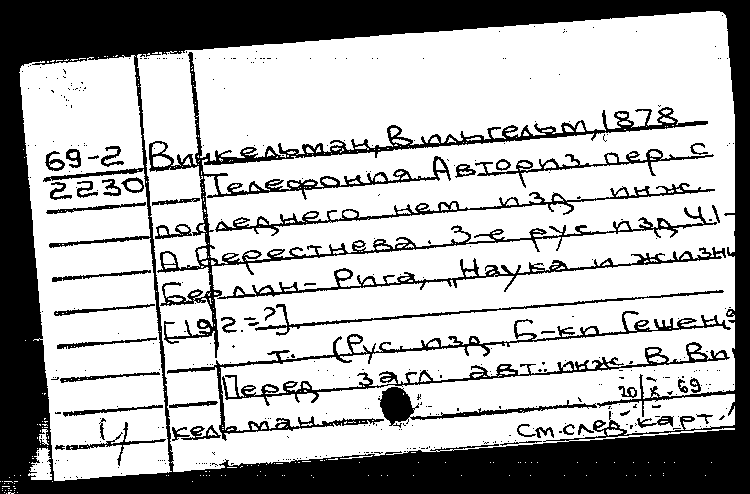 69-2 Винкельман, Вильгельм, 1878
2230 Телефония. Авториз. пер. с
последнего нем. изд. инж.
П. Берестнева. 3-е рус. изд. Ч. 1-
Берлин-Рига, „Наука и жизнь
[192.-?].
т. (Рус. изд. „Б-ки Гешен"
Перед загл. авт.: инж. В. Вин
кельман.
20/X-69
Ч
См. след. карт.